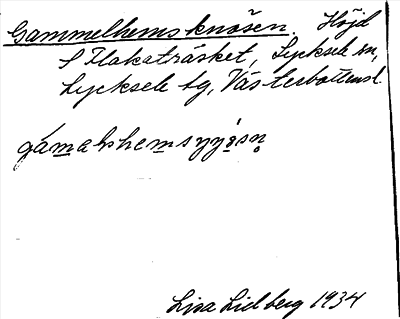 Gammelhemsknösen. Höjd
f Flakaträsket, Lycksele sn,
Lycksele tg, Västerbottensl.
Lisa Lidberg 1934